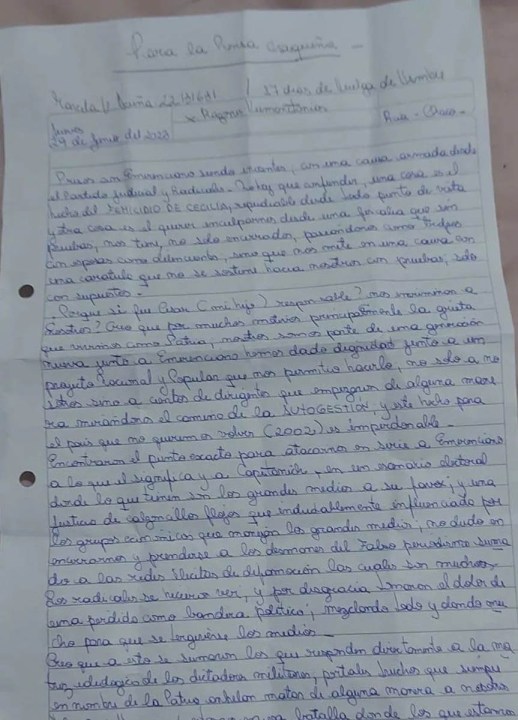 Para la Prensa Chaqueña -
Marcela V. Acuña 22181681 / 17 días de Huelga de Hambre
x Razones Humanitarias
Jueves
29 de Junio del 2023
Rcia - Chaco -
Presos con Emerenciano siendo inocentes, con una causa armada desde
el Partido Judicial y Radicales - No hay que confundir, una cosa es el
hecho del FEMICIDIO DE CECILIA, repudiable desde todo punto de vista
y otra cosa es el querer inculparnos desde una fiscalía que sin
pruebas, nos tiene, no solo encerrados, paseandonos como trofeos
con esposas como delincuentes, sino que nos mete en una causa con
una caratula que no se sostiene hacia nosotros con pruebas, solo
con supuestos -
Porque si fue Cesar (mi hijo) responsable? nos incriminan a
nosotros? Creo que por muchos motivos principalmente la grieta
que vivimos como Patria, nosotros somos parte de una generación
nueva junto a Emerenciano hemos dado dignidad junto a un
proyecto Nacional y Popular que nos permitio hacerlo, no solo a no
sotros sino a cientos de dirigentes que empezaron de alguna mane
ra mirandonos el camino de la AUTOGESTIÓN, y este hecho para
el pais que no queremos volver (2002) es imperdonable -
Encontraron el punto exacto para atacarnos en serie a Emerenciano
a lo que el significa y a Capitanich, en un escenario electoral
donde lo que tienen son los grandes medios a su favor; y una
Justicia de calzoncillos flojos que indudablemente influenciado por
los grupos económicos que manejan los grandes medios; no dudo en
encerrarnos y prenderse a los desmanes del Falso periodismo suma
do a las redes ilícitas de difamación las cuales son muchos
Los radicales se hicieron ver, y por desgracia tomaron el dolor de
una perdida como bandera política; mezclando todo y dando mu
cho para que se tergiverse los medios -
Creo que a esto se sumaron los que responden directamente a la ma
triz ideologica de los dictadores militares, portales truchos que siempre
en nombre de la Patria anhelan matar de alguna manera a nuestros
una batalla donde los que estamos